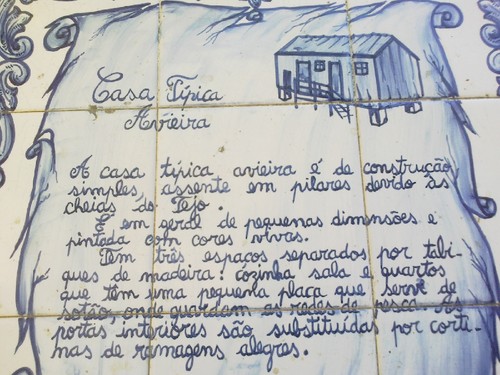 Casa Típica
Avieira
A casa típica avieira é de construção
simples, assente em pilares devido às
cheias do Tejo.
É em geral de pequenas dimensões e
pintada com cores vivas.
Tem três espaços separados por tabi-
ques de madeira: cozinha sala e quartos
que têm uma pequena placa que serve de
sotão, onde guardam as redes de pesca. As
portas interiores são substituídas por corti-
nas de ramagens alegres.